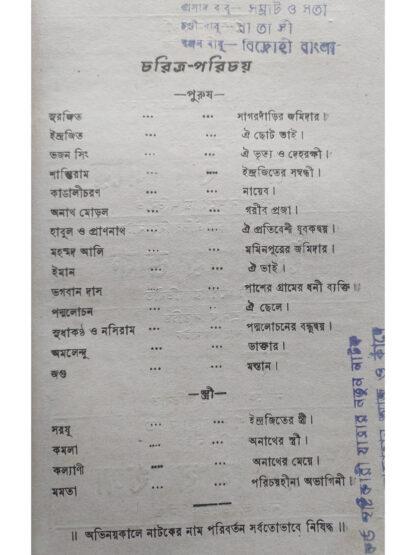 প্রসাদ বাবু — সম্রাট ও সতা
বাবু —
বাবু — বিদ্রোহী বাংলা
চরিত্র-পরিচয়
—পুরুষ—
সুরজিত ... ... সাগরদাঁড়ির জমিদার।
ইন্দ্রজিত ... ... ঐ ছোট ভাই।
ভজন সিং ... ... ঐ ভৃত্য ও দেহরক্ষী।
শান্তিরাম ... ... ইন্দ্রজিতের সম্বন্ধী।
কাঙালীচরণ ... ... নায়েব।
অনাথ মোড়ল ... ... গরীব প্রজা।
হাবুল ও প্রাণনাথ ... ... ঐ প্রতিবেশী যুবকদ্বয়।
মহম্মদ আলি ... ... মমিনপুরের জমিদার।
ইমান ... ... ঐ ভাই।
ভগবান দাস ... ... পাশের গ্রামের ধনী ব্যক্তি।
পদ্মলোচন ... ... ঐ ছেলে।
সুধাকণ্ঠ ও নসিরাম ... ... পদ্মলোচনের বন্ধুদ্বয়।
অমলেন্দু ... ... ডাক্তার।
জগু ... ... মস্তান।
—স্ত্রী—
সরযূ ... ... ইন্দ্রজিতের স্ত্রী।
কমলা ... ... অনাথের স্ত্রী।
কল্যাণী ... ... অনাথের মেয়ে।
মমতা ... ... পরিচয়হীনা অভাগিনী।
॥ অভিনয়কালে নাটকের নাম পরিবর্তন সর্বতোভাবে নিষিদ্ধ ॥
সৃষ্টিকারী যাত্রার নতুন নাটক